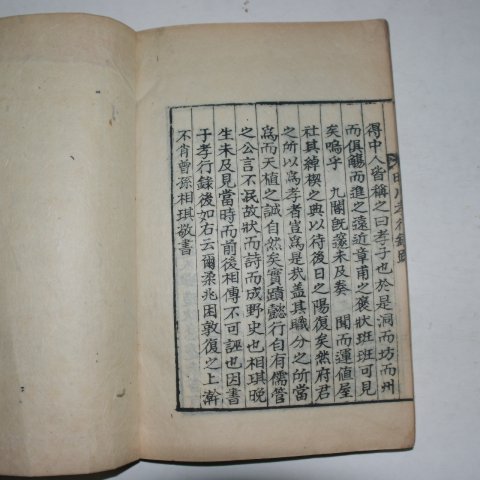 得中人皆稱之曰孝子也於是洞而坊而州
而俱籲而進之遠近章甫之褒狀班班可見
矣嗚乎 九閽旣邃未及奏 聞而運値屋
社其綽楔之典以待後日之陽復矣然府君
之所以爲孝者豈爲是我盖其職分之所當
爲而天植之誠自然矣實蹟懿行自有儒管
之公言不泯故狀而詩而成野史也相琪晚
生未及見當時而前後相傳不可誣也因書
于孝行錄後如右云爾柔兆困敦復之上澣
不肖曾孫相琪敬書